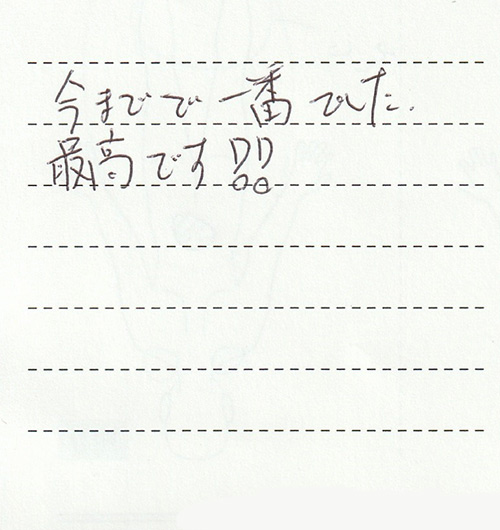 今までで一番でした.
最高です!!